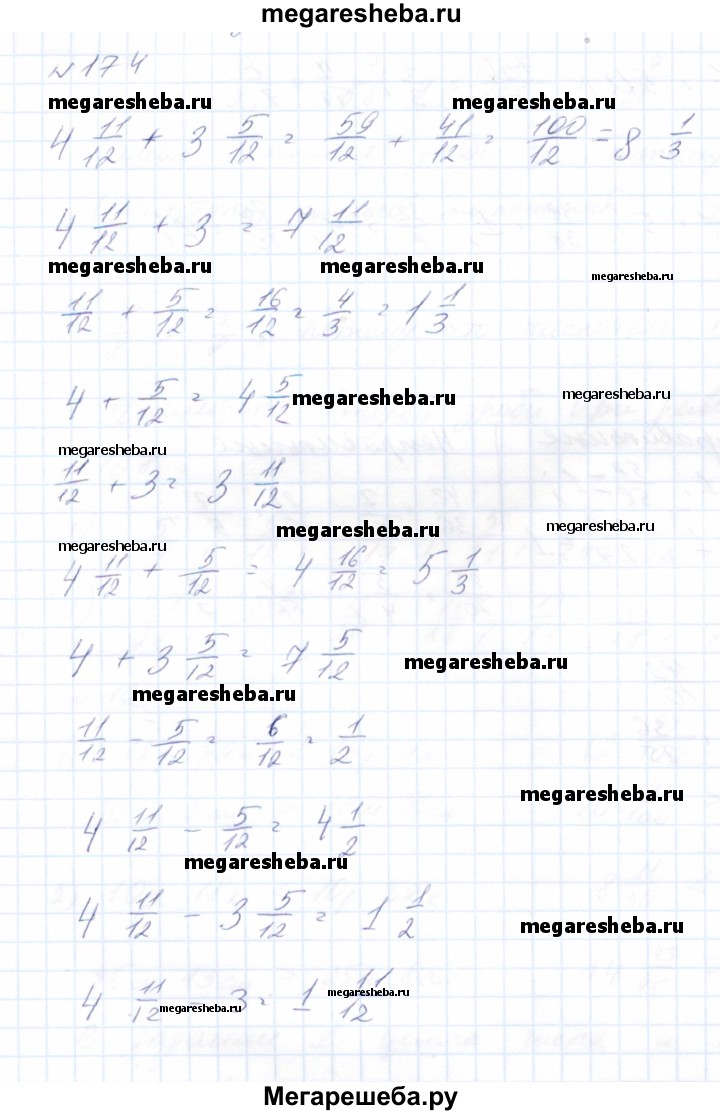 megaresheba.ru
№174
megaresheba.ru megaresheba.ru
4 11/12 + 3 5/12 = 59/12 + 41/12 = 100/12 = 8 1/3
4 11/12 + 3 = 7 11/12
megaresheba.ru megaresheba.ru megaresheba.ru
11/12 + 5/12 = 16/12 = 4/3 = 1 1/3
4 + 5/12 = 4 5/12
megaresheba.ru megaresheba.ru
megaresheba.ru
11/12 + 3 = 3 11/12
megaresheba.ru megaresheba.ru
megaresheba.ru
4 11/12 + 5/12 = 4 16/12 = 5 1/3
4 + 3 5/12 = 7 5/12
megaresheba.ru
megaresheba.ru
11/12 - 5/12 = 6/12 = 1/2
megaresheba.ru
4 11/12 - 5/12 = 4 1/2
megaresheba.ru
4 11/12 - 3 5/12 = 1 1/2
megaresheba.ru
4 11/12 - 3 = 1 11/12
megaresheba.ru
megaresheba.ru
Мегарешеба.ру